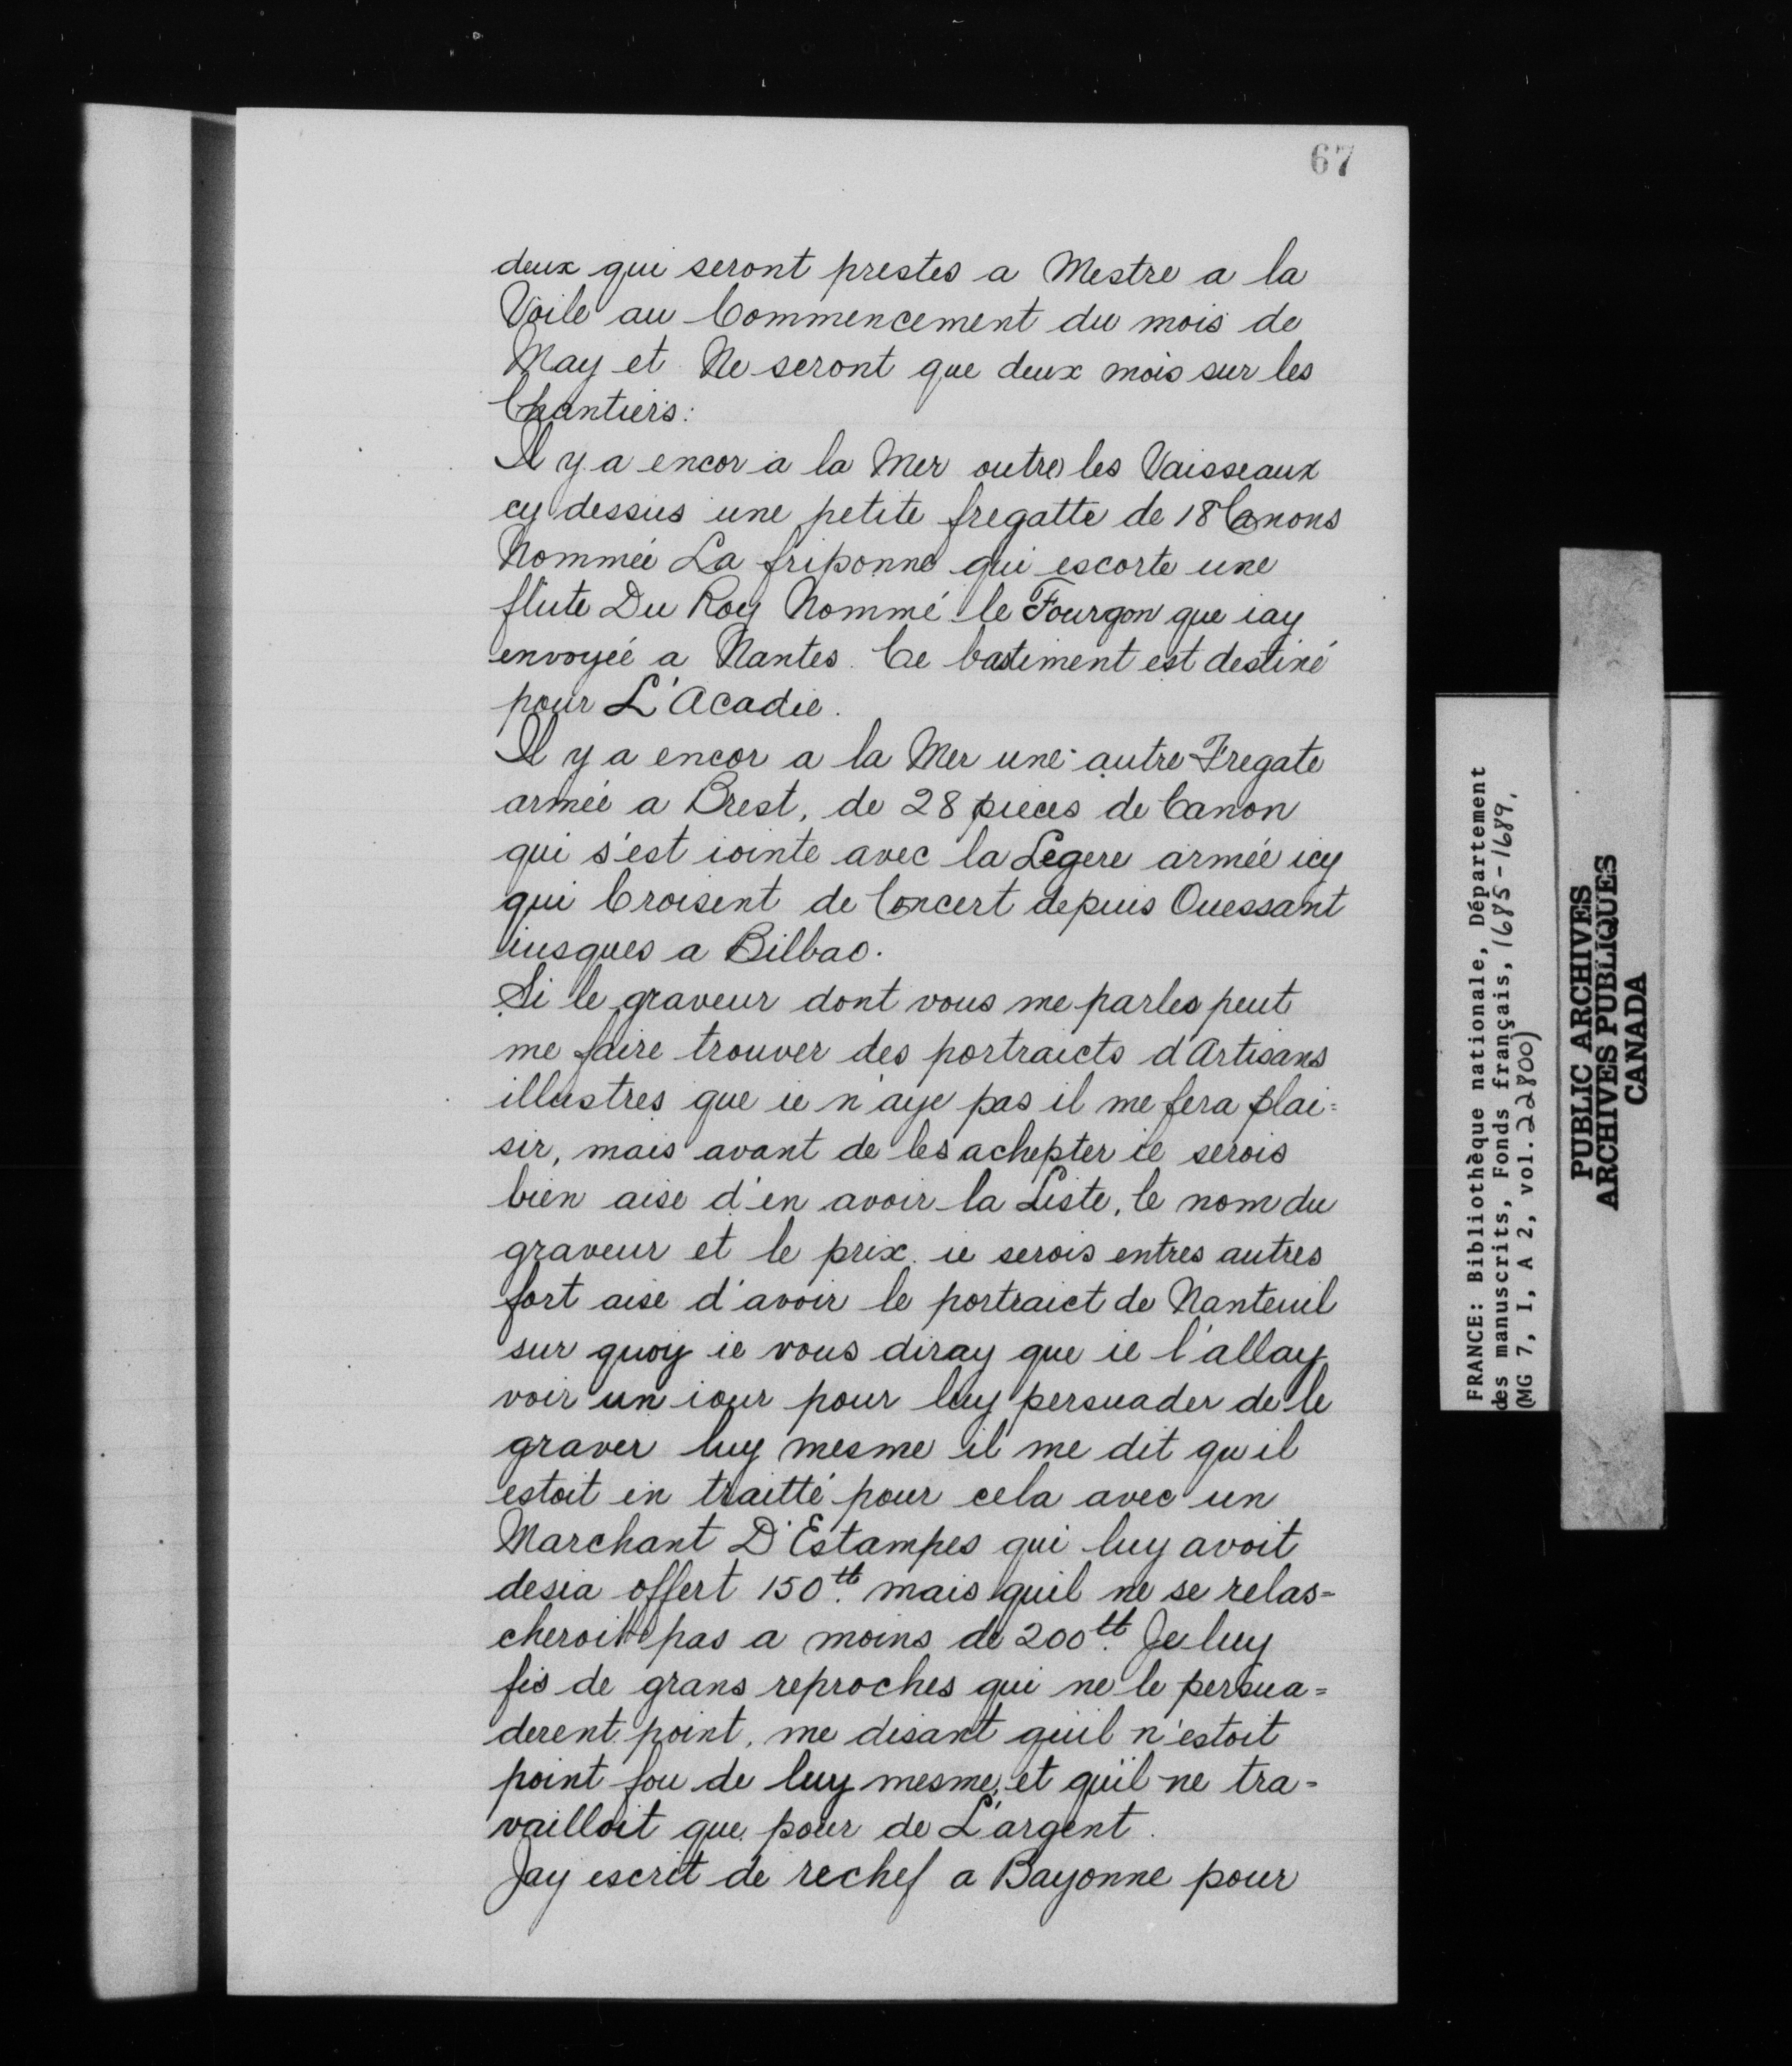 67
deux qui seront prestes a Mestre a la
Voile au Commencement du mois de
May et Ne seront que deux mois sur les
Chantiers:
Il y a encor a la Mer outre les Vaisseaux
cy dessus une petite fregatte de 18 Canons
Nommée La friponne qui escorte une
flute Du Roy Nommé le Fourgon que iay
envoyéé a Nantes. Ce bastiment est destiné
pour L'Acadie.
Il y a encor a la Mer une autre Fregate
armée a Brest, de 28 pieces de Canon
qui s'est iointe avec la Legere armée icy
qui Croisent de Concert depuis Ouessant
iusques a Bilbao.
Si le graveur dont vous me parles peut
me faire trouver des portraicts d'Artisans
illustres que ie n'aye pas il me fera plai=
sir, mais avant de les achepter ie serois
bien aise d'en avoir la Liste, le nom du
graveur et le prix. ie serois entres autres
fort aise d'avoir le portraict de Nanteuil
sur quoy ie vous diray que ie l'allay
voir un iour pour luy persuader de le
graver luy mesme il me dit qu il
estoit en traitté pour cela avec un
Marchant D'Estampes qui luy avoit
desia offert 150tt. mais quil ne se relas=
cheroit pas a moins de 200tt. Je luy
fis de grans reproches qui ne le persua=
derent point, me disant qu'il n'estoit
point fou de luy mesme, et qu'il ne tra=
vailloit que pour de L'argent.
Jay escrit de rechef a Bayonne pour
FRANCE: Bibliothèque nationale, Département
des manuscrits, Fonds français, 1685-1689.
(MG 7, I, A 2, vol. 22800)
PUBLIC ARCHIVES
ARCHIVES PUBLIQUES
CANADA